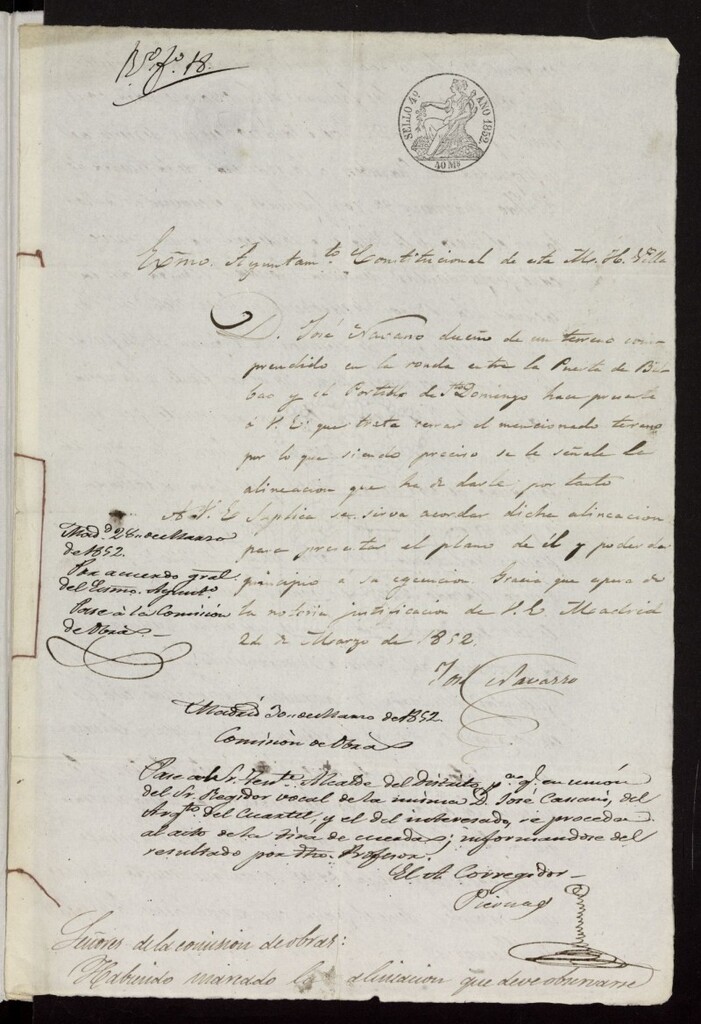 Rº fº 18.
SELLO 4º AÑO 1852.
40 Ms
Exmo. Ayuntamto Constitucional de esta M. H. Villa
D. José Navarro dueño de un terreno com-
prendido en la ronda entre la Puerta de Bil-
bao y el Portillo de Sto Domingo hace presente
á V. E. que trata cerrar el mencionado terreno
por lo que siendo preciso se le señale la
alineacion que ha de darle, por tanto
A V. E. Suplica se sirva acordar dicha alineacion
para presentar el plano de él y poder dar
principio a su egecucion. Gracia que espera de
la notoria justificacion de V. E. Madrid
24 de Marzo de 1852.
José Navarro
Madd 28 de Marzo
de 1852.
Por acuerdo gral
del Exmo. Ayunto
Pase à la Comision
de Obras
Madrid 30 de Marzo de 1852.
Comision de Obras
Pase al Sr. Tente Alcalde del Distrito, pa q. en union
del Sr. Regidor vocal de la misma D. José Cassani, del
Arqto del Cuartel, y el del interesado, se proceda
al acto de la tira de cuerda; informandose del
resultado por dho. Profesor.
El A. Corregidor
Señores de la comision de obras:
Habiendo marcado la alineacion que deve observarse